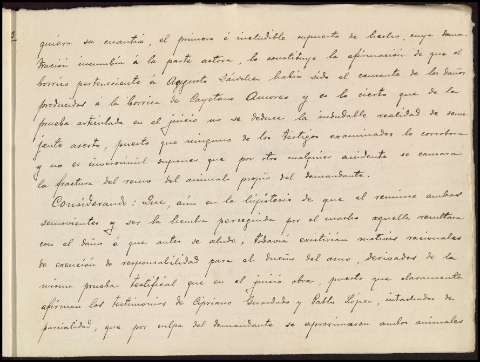 quiera su cuantía, el primero é ineludible supuesto de hecho, cuya demos-
tración incumbía á la parte actora, lo constituye la afirmación de que el
borrico perteneciente á Augusto Sánchez había sido el causante de los daños
producidos á la borrica de Cayetano Amores y es lo cierto que de la
prueba articulada en el juicio no se deduce la indudable realidad de seme-
jante aserto, puesto que ninguno de los testigos examinados lo corrobora
y no es inverosimil suponer que por otro cualquier accidente se causara
la fractura del remo del animal propio del demandante.
Considerando: Que, aún en la hipótesis de que al reunirse ambos
semovientes y ser la hembra perseguida por el macho aquella resultara
con el daño á que antes se alude, todavía existirían motivos racionales
de exención de responsabilidad para el dueño del asno, derivados de la
misma prueba testifical que en el juicio obra, puesto que claramente
afirman los testimonios de Cipriano Guardado y Pablo López, intachados de
parcialidad, que por culpa del demandante se aproximaron ambos animales